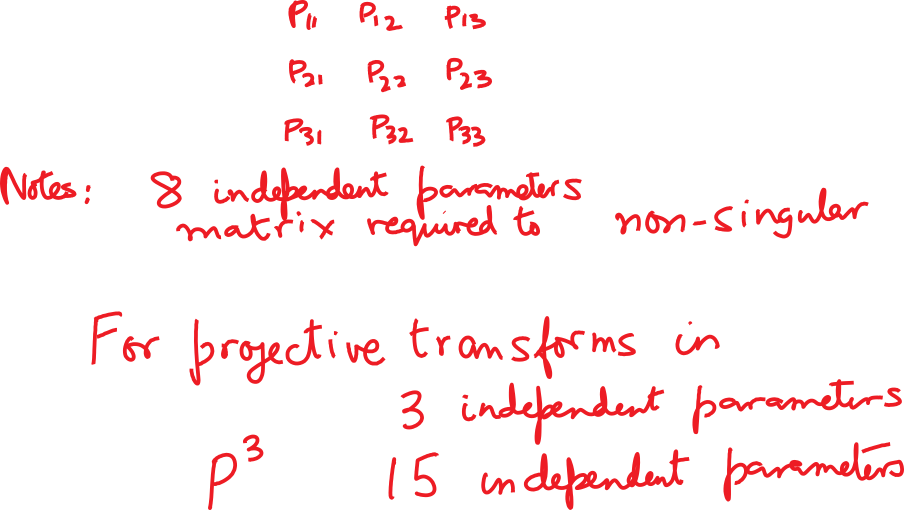 P11 P12 P13
P21 P22 P23
P31 P32 P33
Notes: 8 independent parameters
matrix required to non-singular
For projective transforms in
3 independent parameters
P³ 15 independent parameters